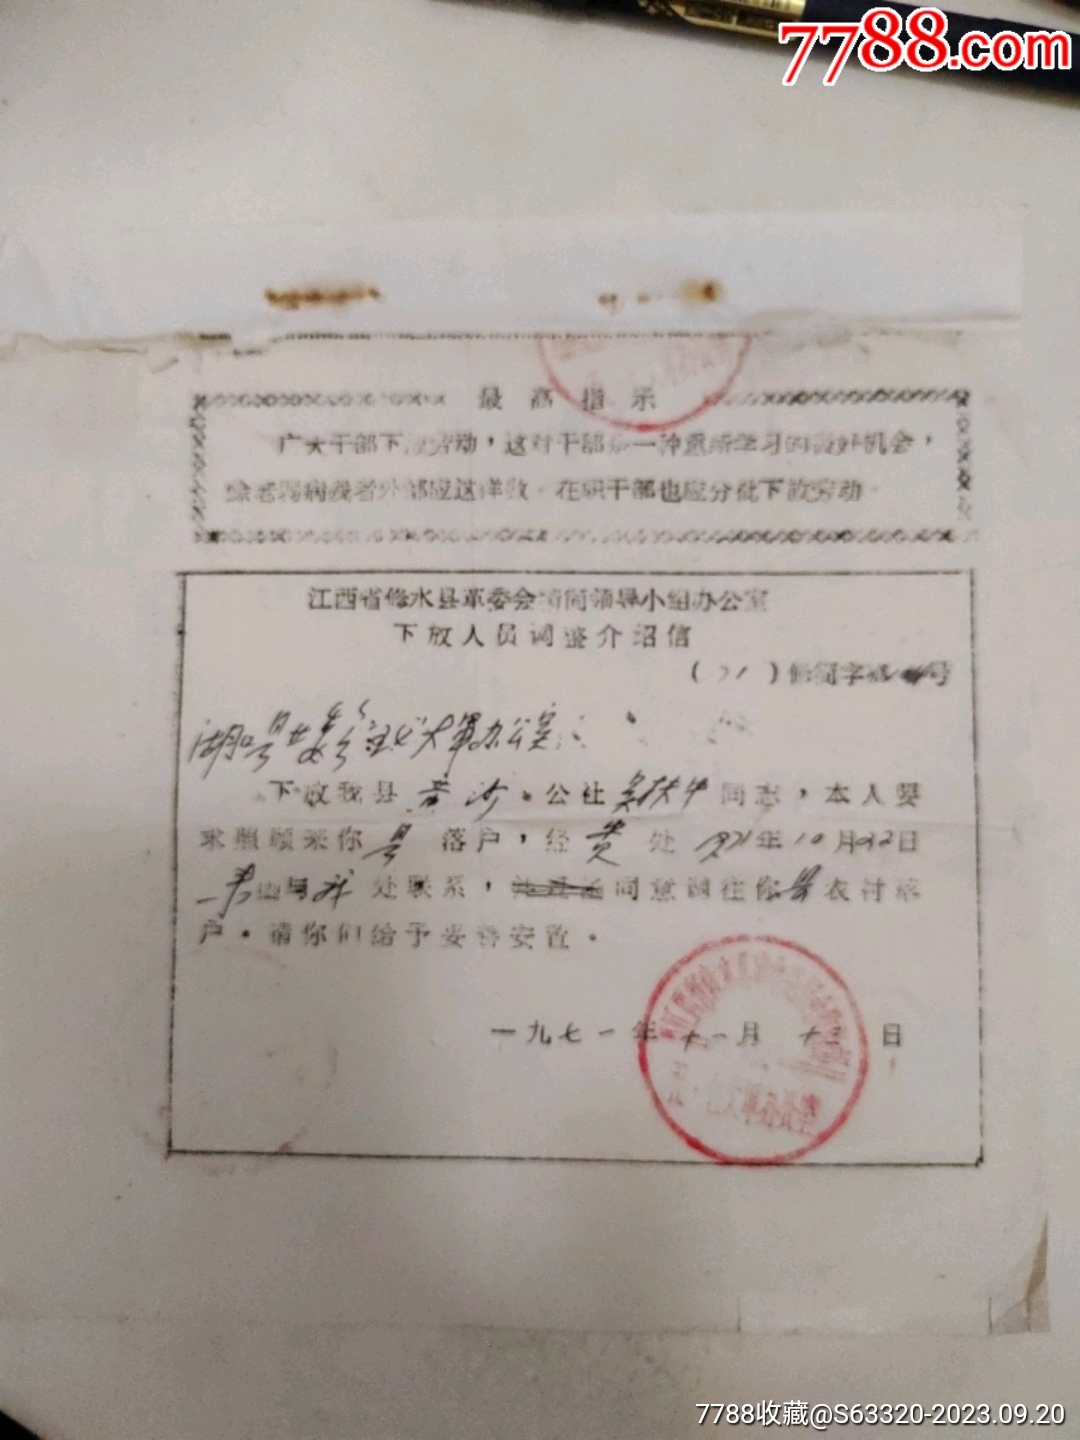 7788.com
最高指示
广大干部下放劳动，这对干部是一种重新学习的极好机会，
除老弱病残者外都应这样做。在职干部也应分批下放劳动。
江西省修水县革委会精简领导小组办公室
下放人员调整介绍信
（71）修简字第 号
湖口县 办公室：
下放我县黄沙公社吴扶 同志，本人要
求照顾来你县落户，经贵处1971年10月22日
与我处联系，同意调往你县农村落
户。请你们给予妥善安置。
一九七一年十一月十 日
办公室
7788收藏@S63320-2023.09.20